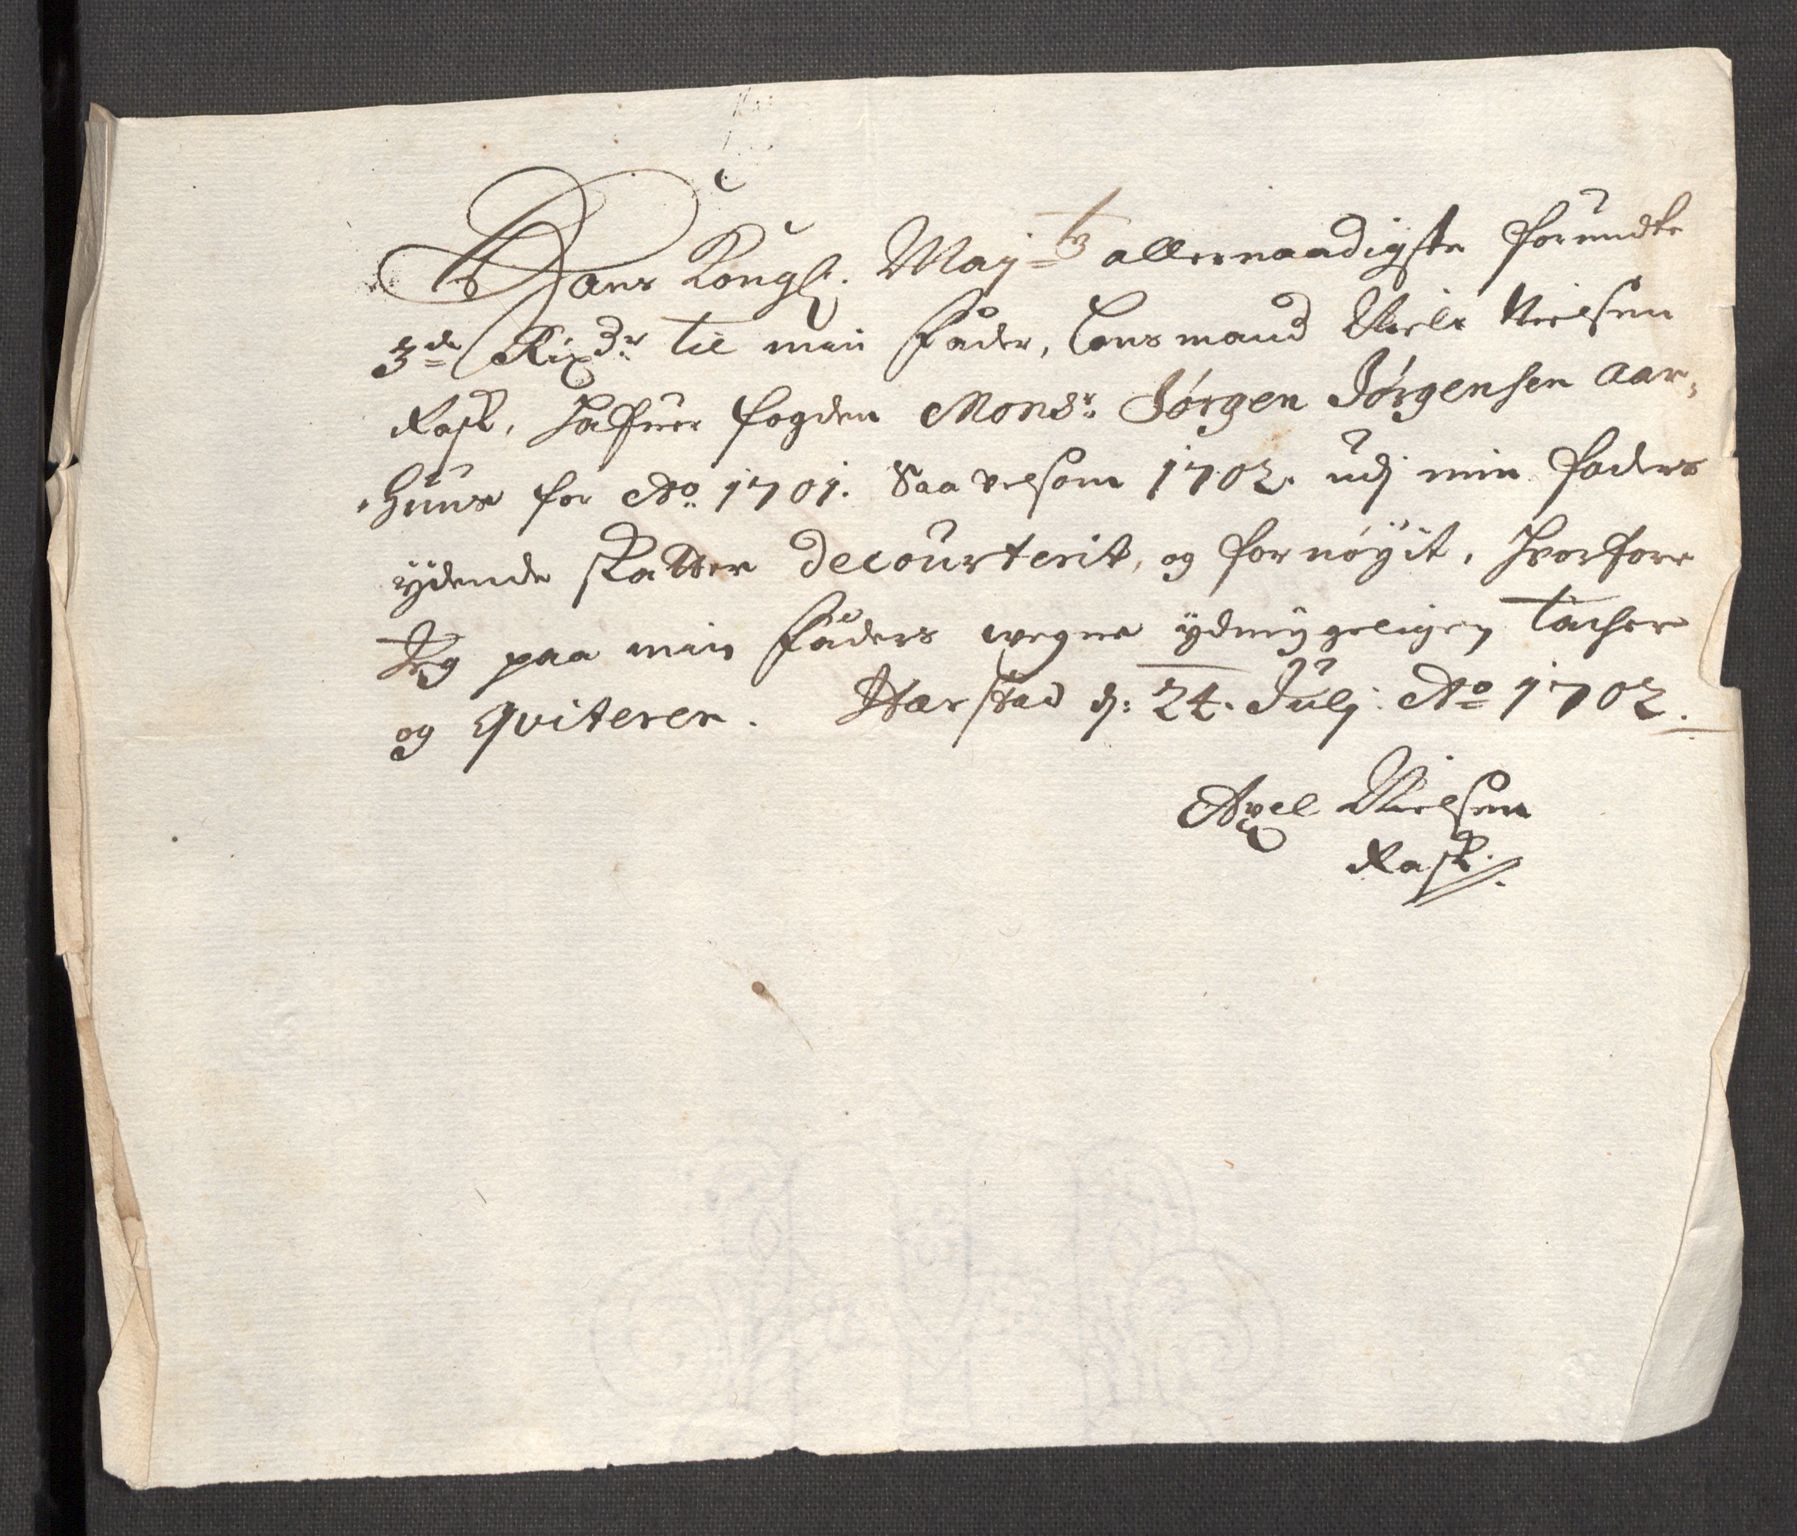 Hans Kongl. May:tz allernaadigste forundte
3de Rixdr til min Fader, Lensmand Niels Nielsen
Rask, hafuer fogden Monsr. Jørgen Jørgensen Aar-
huus for Ao. 1701. Saavelsom 1702. udj min faders
ydende skatter decourterit, og fornøyit, hvorfore
Jeg paa min Faders wegne ydmygeligen tacher
og qviterer. Harstad d: 24. Julj Ao 1702.
Axel Nielsen
Rask.